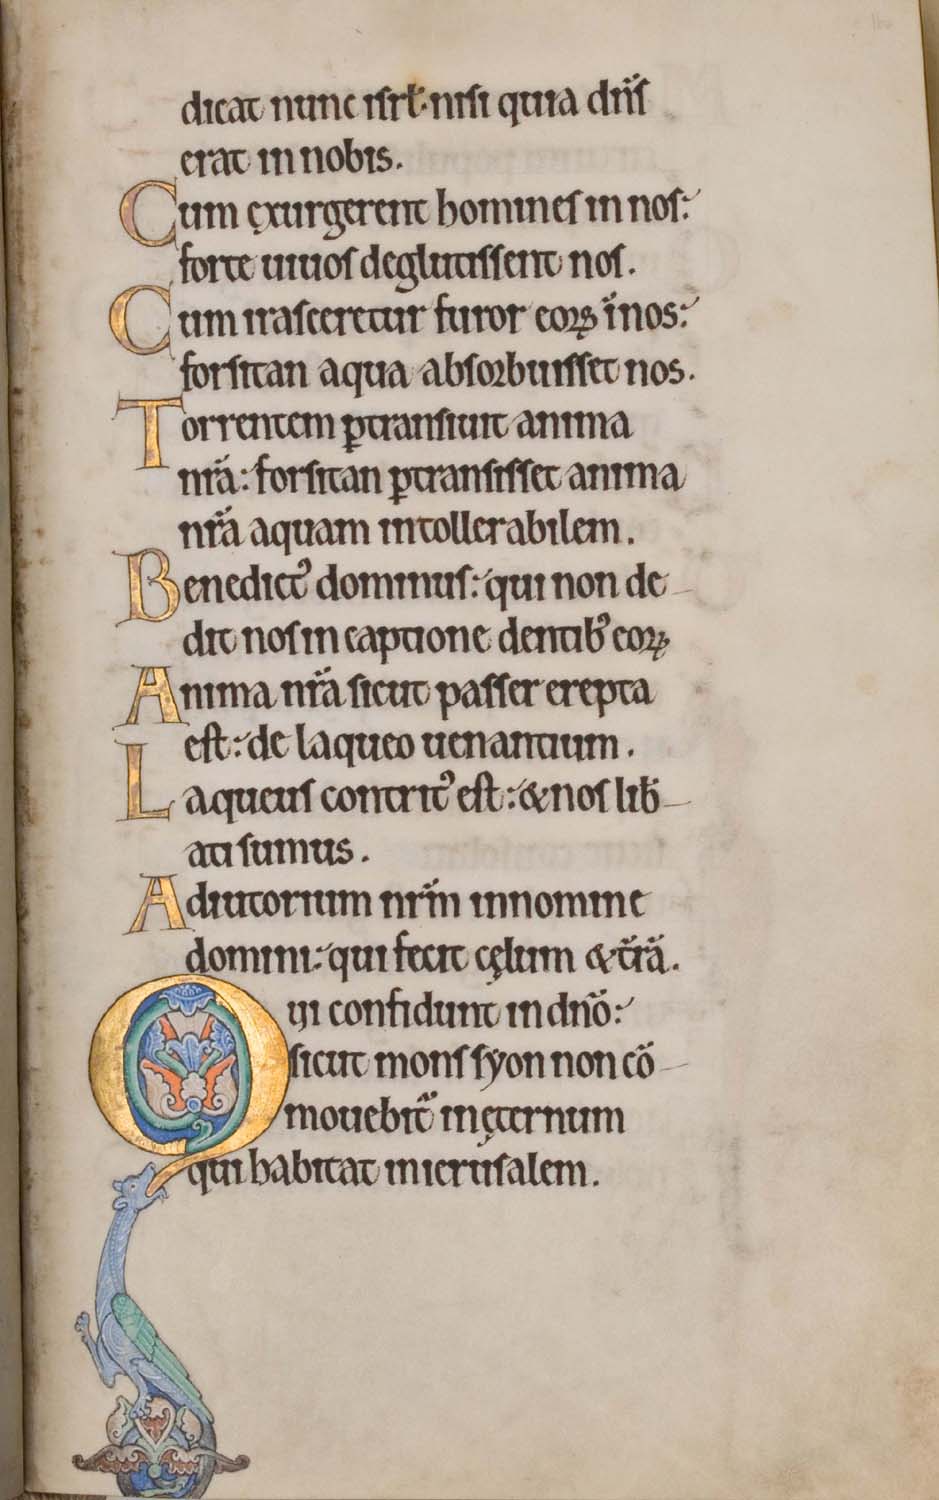 dicat nunc isrł· nisi quia dn̄s
erat in nobis.
Cum exurgerent homines in nos:
forte uiuos deglutissent nos.
Cum irasceretur furor eoꝝ in nos:
forsitan aqua absorbuisset nos.
Torrentem ꝑtransiuit anima
nr̄a: forsitan ꝑtransisset anima
nr̄a aquam intollerabilem.
Benedictꝰ dominus: qui non de
dit nos in captione dentibꝰ eoꝝ
Anima nr̄a sicut passer erepta
est: de laqueo uenantium.
Laqueus contritꝰ est: & nos lib̄
ati sumus.
Adiutorium nr̄m in nomine
domini: qui fecit cęlum & tr̄ā.
Qui confidunt in dn̄o:
sicut mons syon non cō
mouebit᷑ in ęternum
qui habitat in ierusalem.